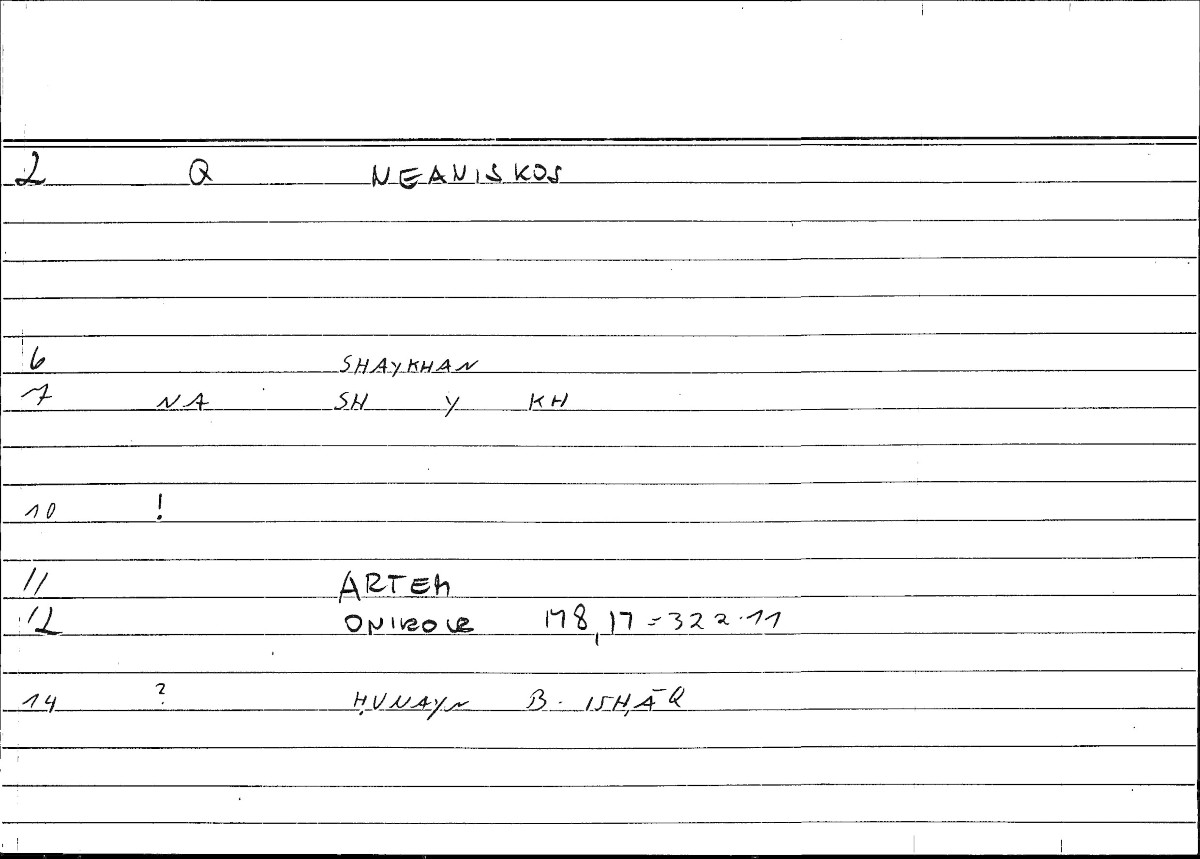 2 Q NEANISKOS
6 SHAYKHAN
7 NA SH Y KH
10 !
11 ARTEM
12 ONIROCR 178,17 = 322.11
14 ? ḤUNAYN B. ISḤĀQ